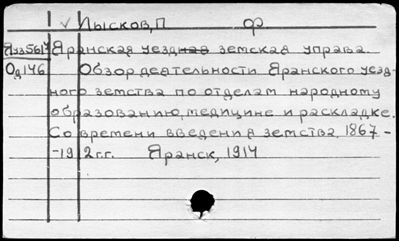 √ Лысков, П ф
Яуз561ч Яранская уездная земская управа.
Од146 Обзор деятельности Яранского уезд-
ного земства по отделам народному
образованию, медицине и раскладке.
Со времени введения земства, 1867-
-1912гг. Яранск, 1914